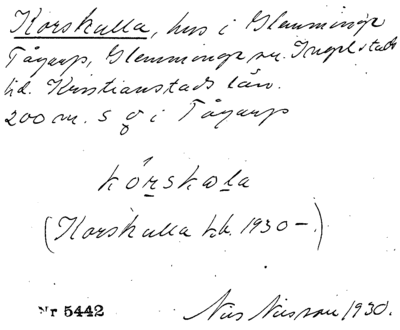 Korskulla, hus i Glemminge
Tågarp, Glemminge sn. Ingelstads
hd. Kristianstads län.
200 m. S g i Tågarp
kórskala
(Korskulla kb. 1930–.)
Nr 5442 Nils Nilsson 1930.